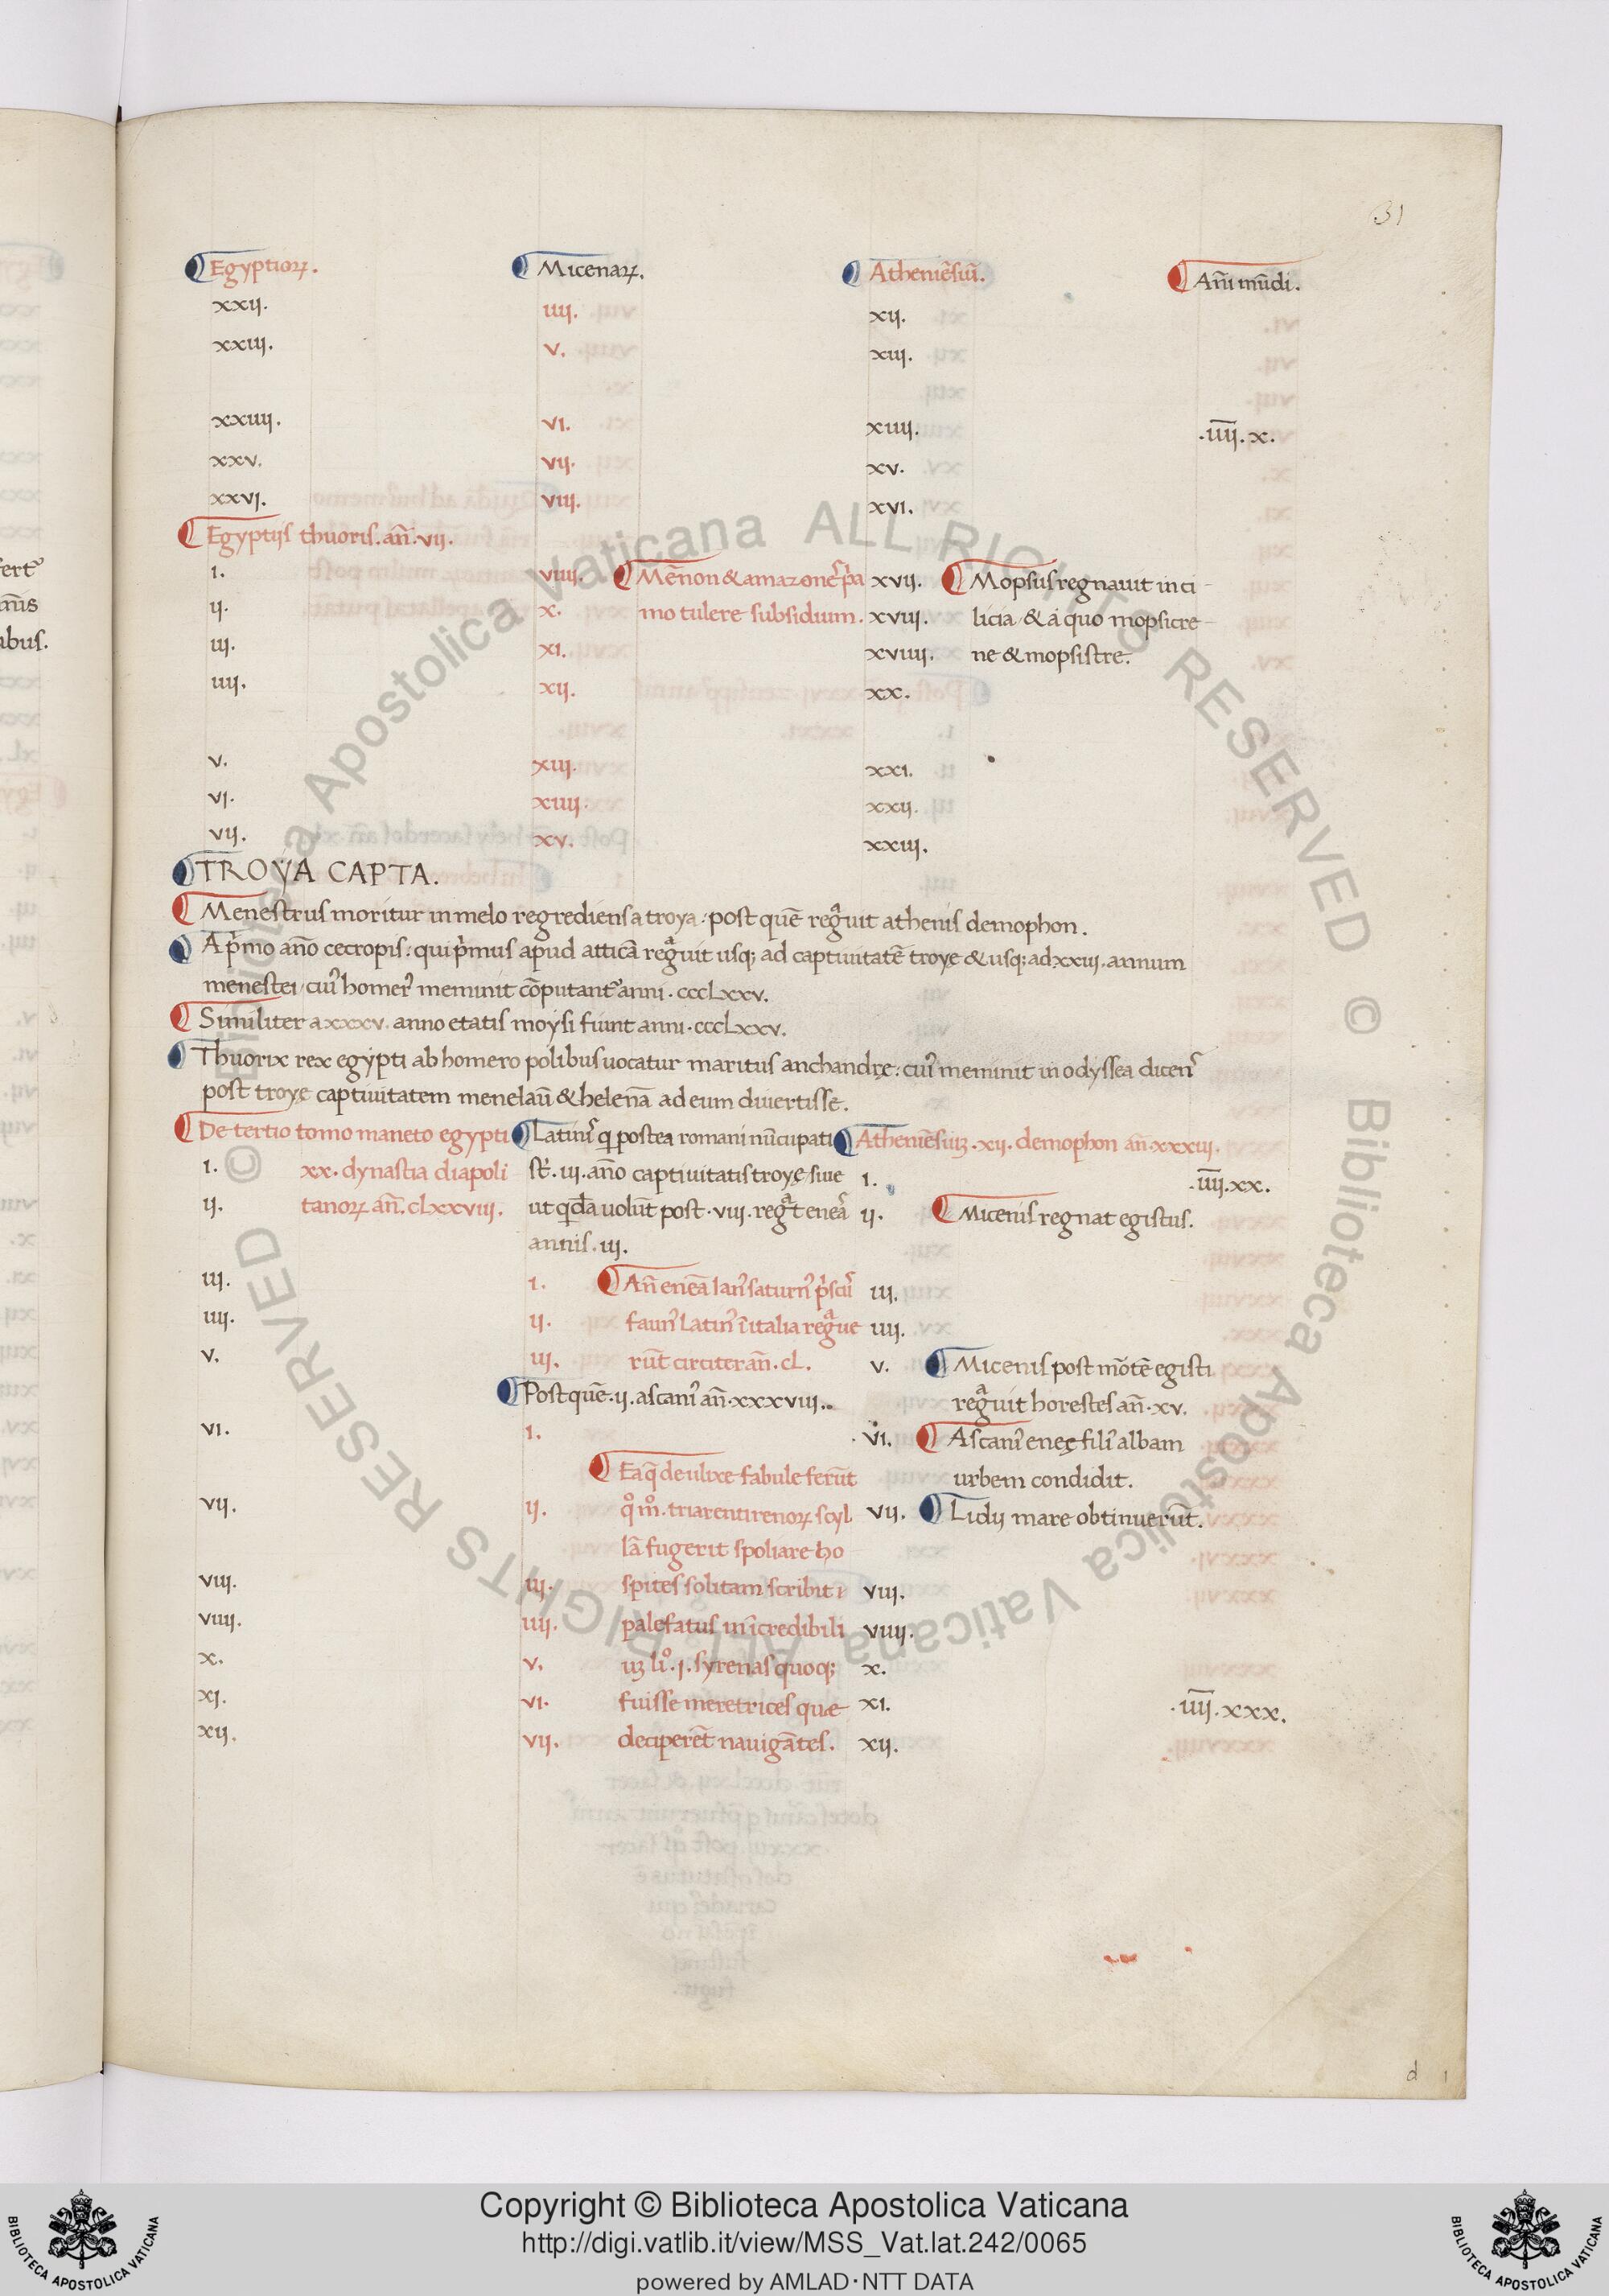 31
Egyptioꝝ. Micenaꝝ. Atheniēsiū. Añi mūdi.
xxij. iiij. xij.
xxiij. v. xiij.
xxiiij. vi. xiiij. .iiij. x.
xxv. vij. xv.
xxvi. viij. xvi.
Egyptijs thuoris. añ. vij.
i. viiij. Mēnon & amazones pͥ xvij. Mopsus regnauit in ci-
ij. x. mo tulere subsidium. xviij. licia / & a quo mopsicre-
iij. xi. xviiij. ne & mopsistre.
iiij. xij. xx.
v. xiij. xxi.
vi. xiiij. xxij.
vij. xv. xxiij.
TROYA CAPTA.
Menestrus moritur in melo regrediens a troya: post quē regͣuit athenis demophon.
A pͥmo año cecropis: qui pͥmus apud atticā regͣuit usq; ad captiuitatē troye & usq; ad xxiij. annum
menestei / cuiꝰ homerꝰ meminit cōputantᷣ anni. cccLxxv.
Similiter a xxxv. anno etatis moysi fiunt anni. cccLxxv.
Thuorix rex egypti ab homero polibus uocatur maritus anchandrę: cuiꝰ meminit in odyssea dicens
post troyę captiuitatem menelaū & helenā ad eum diuertisse.
De tertio tomo maneto egypti Latinis q postea romani nūcupati Atheniēsiuꝫ. xij. demophon añ. xxxiij.
i. xx. dynastia diapoli st̄. iij. año captiuitatis troyę / siue i. .iiij. xx.
ij. tanoꝝ añ. clxxviij. ut qͥdā uolūt post. viij. regͣt eneas ij. Micenis regnat egistus.
annis. iij.
iij. i. Añ eneā ianꝰ saturnꝰ pͥscꝰ iij.
iiij. ij. faunꝰ latinꝰ ī italia regͣue iiij.
v. iij. rūt circiter añ. cl. v. Micenis post mōtē egisti
Post quē. ij. ascaniꝰ añ. xxxviij. regͣuit horestes añ. xv.
vi. i. vi. Ascaniꝰ eneę filiꝰ albam
Ea q̄ de ulixe fabule ferūt urbem condidit.
vij. ij. qͦ mͦ. triarenti renoꝝ scyl vij. Lidij mare obtinuerūt.
lā fugerit spoliare ho
viij. iij. spites solitam scribit i viij.
viiij. iiij. palefatus in īcredibili viiij.
x. v. uꝫ liͦ. j. syrenas quoq; x.
xi. vi. fuisse meretrices quæ xi. .iiij. xxx.
xij. vij. deciperēt nauigātes. xij.
d 1
Copyright © Biblioteca Apostolica Vaticana
http://digi.vatlib.it/view/MSS_Vat.lat.242/0065
powered by AMLAD·NTT DATA
BIBLIOTECA APOSTOLICA VATICANA
BIBLIOTECA APOSTOLICA VATICANA
© Biblioteca Apostolica Vaticana ALL RIGHTS RESERVED © Biblioteca Apostolica Vaticana ALL RIGHTS RESERVED